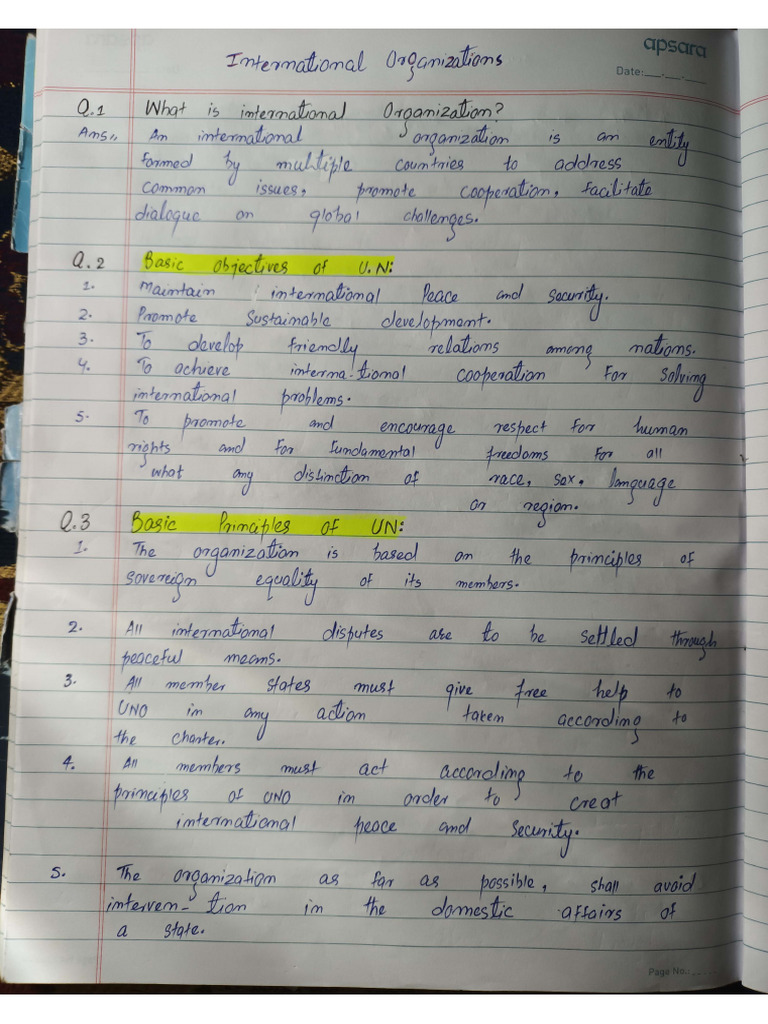 International Organizations
apsara
Date:
Q.1 What is international Organization?
Ans,, An international organization is an entity
formed by multiple countries to address
common issues, promote cooperation, facilitate
dialogue on global challenges.
Q.2 Basic Objectives of U.N:
1. Maintain international Peace and Security.
2. Promote Sustainable development.
3. To develop friendly relations among nations.
4. To achieve interna-tional cooperation for solving
international problems.
5. To promote and encourage respect for human
rights and for fundamental freedoms for all
what any distinction of race, sex, language
or region.
Q.3 Basic Principles of UN:
1. The organization is based on the principles of
sovereign equality of its members.
2. All international disputes are to be settled through
peaceful means.
3. All member states must give free help to
UNO in any action taken according to
the charter.
4. All members must act according to the
principles of UNO in order to creat
international peace and security.
5. The organization as far as possible, shall avoid
interven-tion in the domestic affairs of
a state.
Page No.: